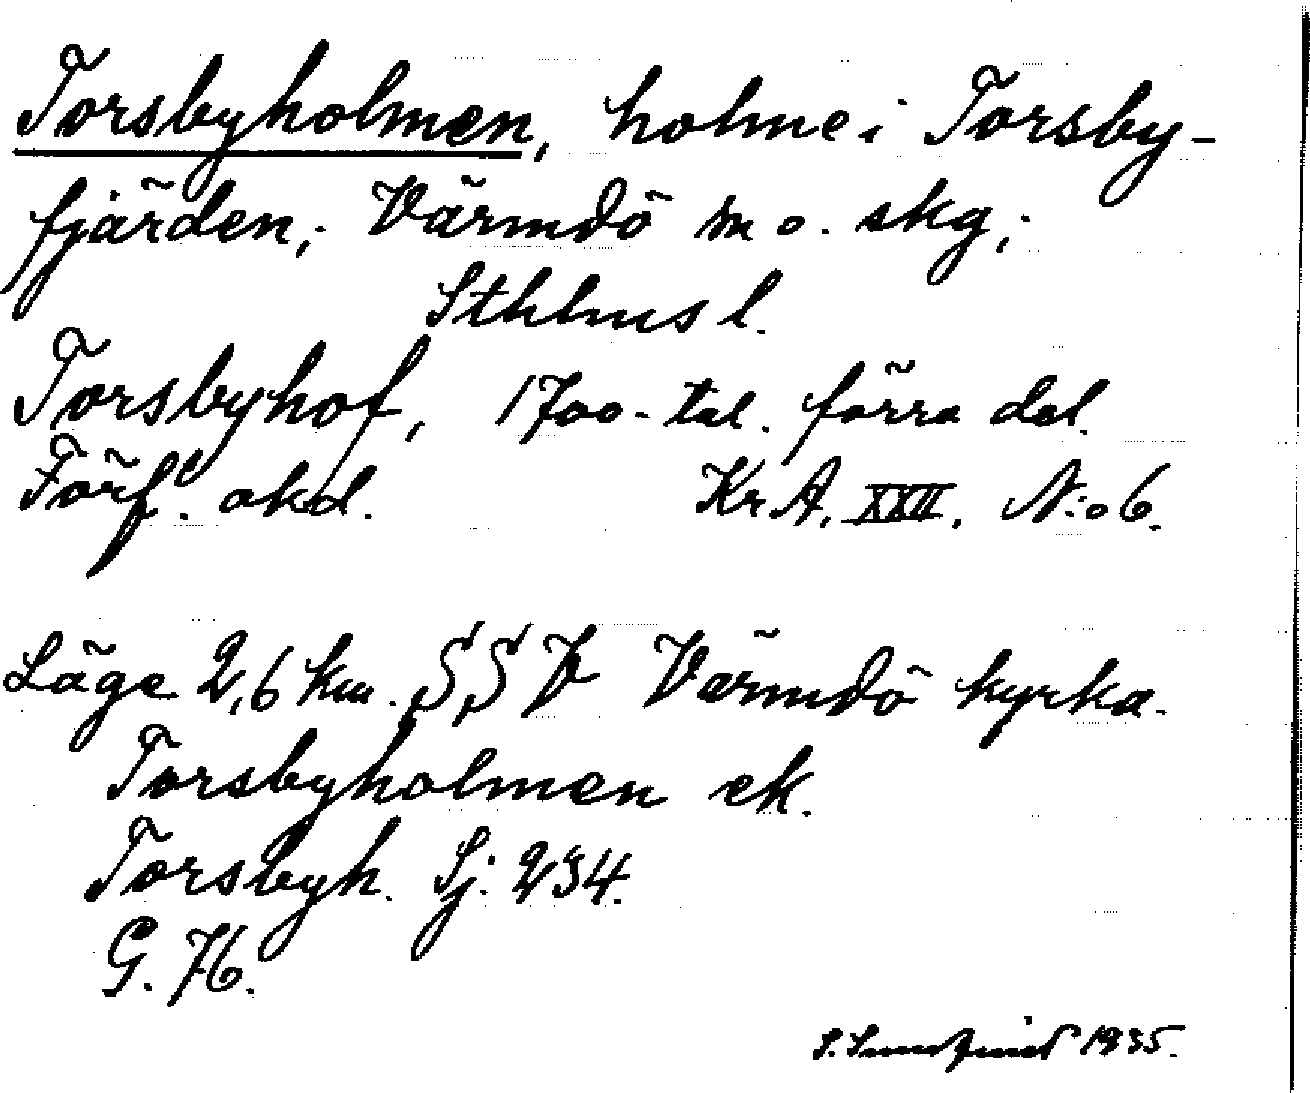 Torsbyholmen, holme i Torsby-
fjärden, Värmdö m o. skg;
Sthlms l.
Torsbyhof, 1700-tal. förra del.
Förf. okd. KrA. XXII. N:o 6.
Läge 2,6 km. S,S V Värmdö kyrka.
Torsbyholmen ek.
Torsbyh. Sj: 234.
G. 76.
1935.